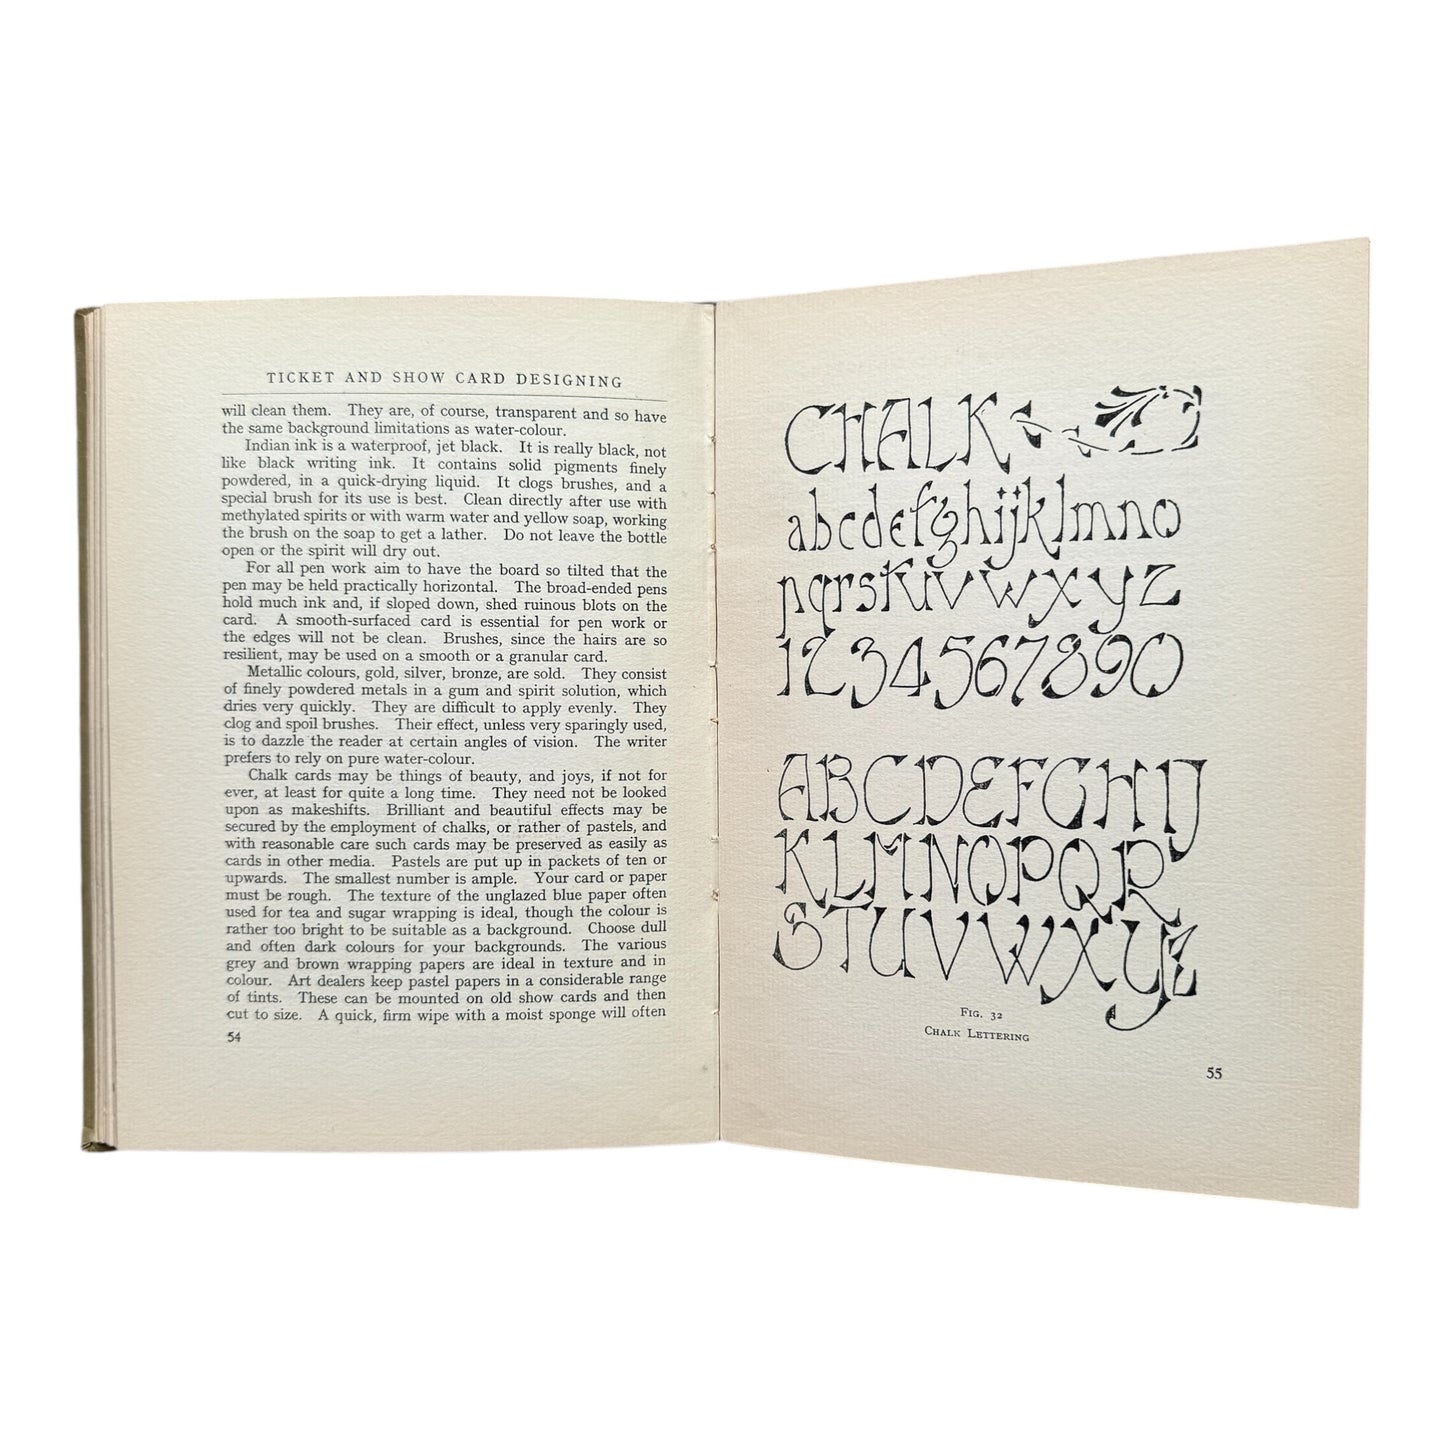 TICKET AND SHOW CARD DESIGNING
will clean them. They are, of course, transparent and so have
the same background limitations as water-colour.
Indian ink is a waterproof, jet black. It is really black, not
like black writing ink. It contains solid pigments finely
powdered, in a quick-drying liquid. It clogs brushes, and a
special brush for its use is best. Clean directly after use with
methylated spirits or with warm water and yellow soap, working
the brush on the soap to get a lather. Do not leave the bottle
open or the spirit will dry out.
For all pen work aim to have the board so tilted that the
pen may be held practically horizontal. The broad-ended pens
hold much ink and, if sloped down, shed ruinous blots on the
card. A smooth-surfaced card is essential for pen work or
the edges will not be clean. Brushes, since the hairs are so
resilient, may be used on a smooth or a granular card.
Metallic colours, gold, silver, bronze, are sold. They consist
of finely powdered metals in a gum and spirit solution, which
dries very quickly. They are difficult to apply evenly. They
clog and spoil brushes. Their effect, unless very sparingly used,
is to dazzle the reader at certain angles of vision. The writer
prefers to rely on pure water-colour.
Chalk cards may be things of beauty, and joys, if not for
ever, at least for quite a long time. They need not be looked
upon as makeshifts. Brilliant and beautiful effects may be
secured by the employment of chalks, or rather of pastels, and
with reasonable care such cards may be preserved as easily as
cards in other media. Pastels are put up in packets of ten or
upwards. The smallest number is ample. Your card or paper
must be rough. The texture of the unglazed blue paper often
used for tea and sugar wrapping is ideal, though the colour is
rather too bright to be suitable as a background. Choose dull
and often dark colours for your backgrounds. The various
grey and brown wrapping papers are ideal in texture and in
colour. Art dealers keep pastel papers in a considerable range
of tints. These can be mounted on old show cards and then
cut to size. A quick, firm wipe with a moist sponge will often
54
CHALK
abcdefghijklmno
pqrstuvwxyz
1234567890
ABCDEFGHIJ
KLMNOPQR
STUVWXYZ
FIG. 32
CHALK LETTERING
55